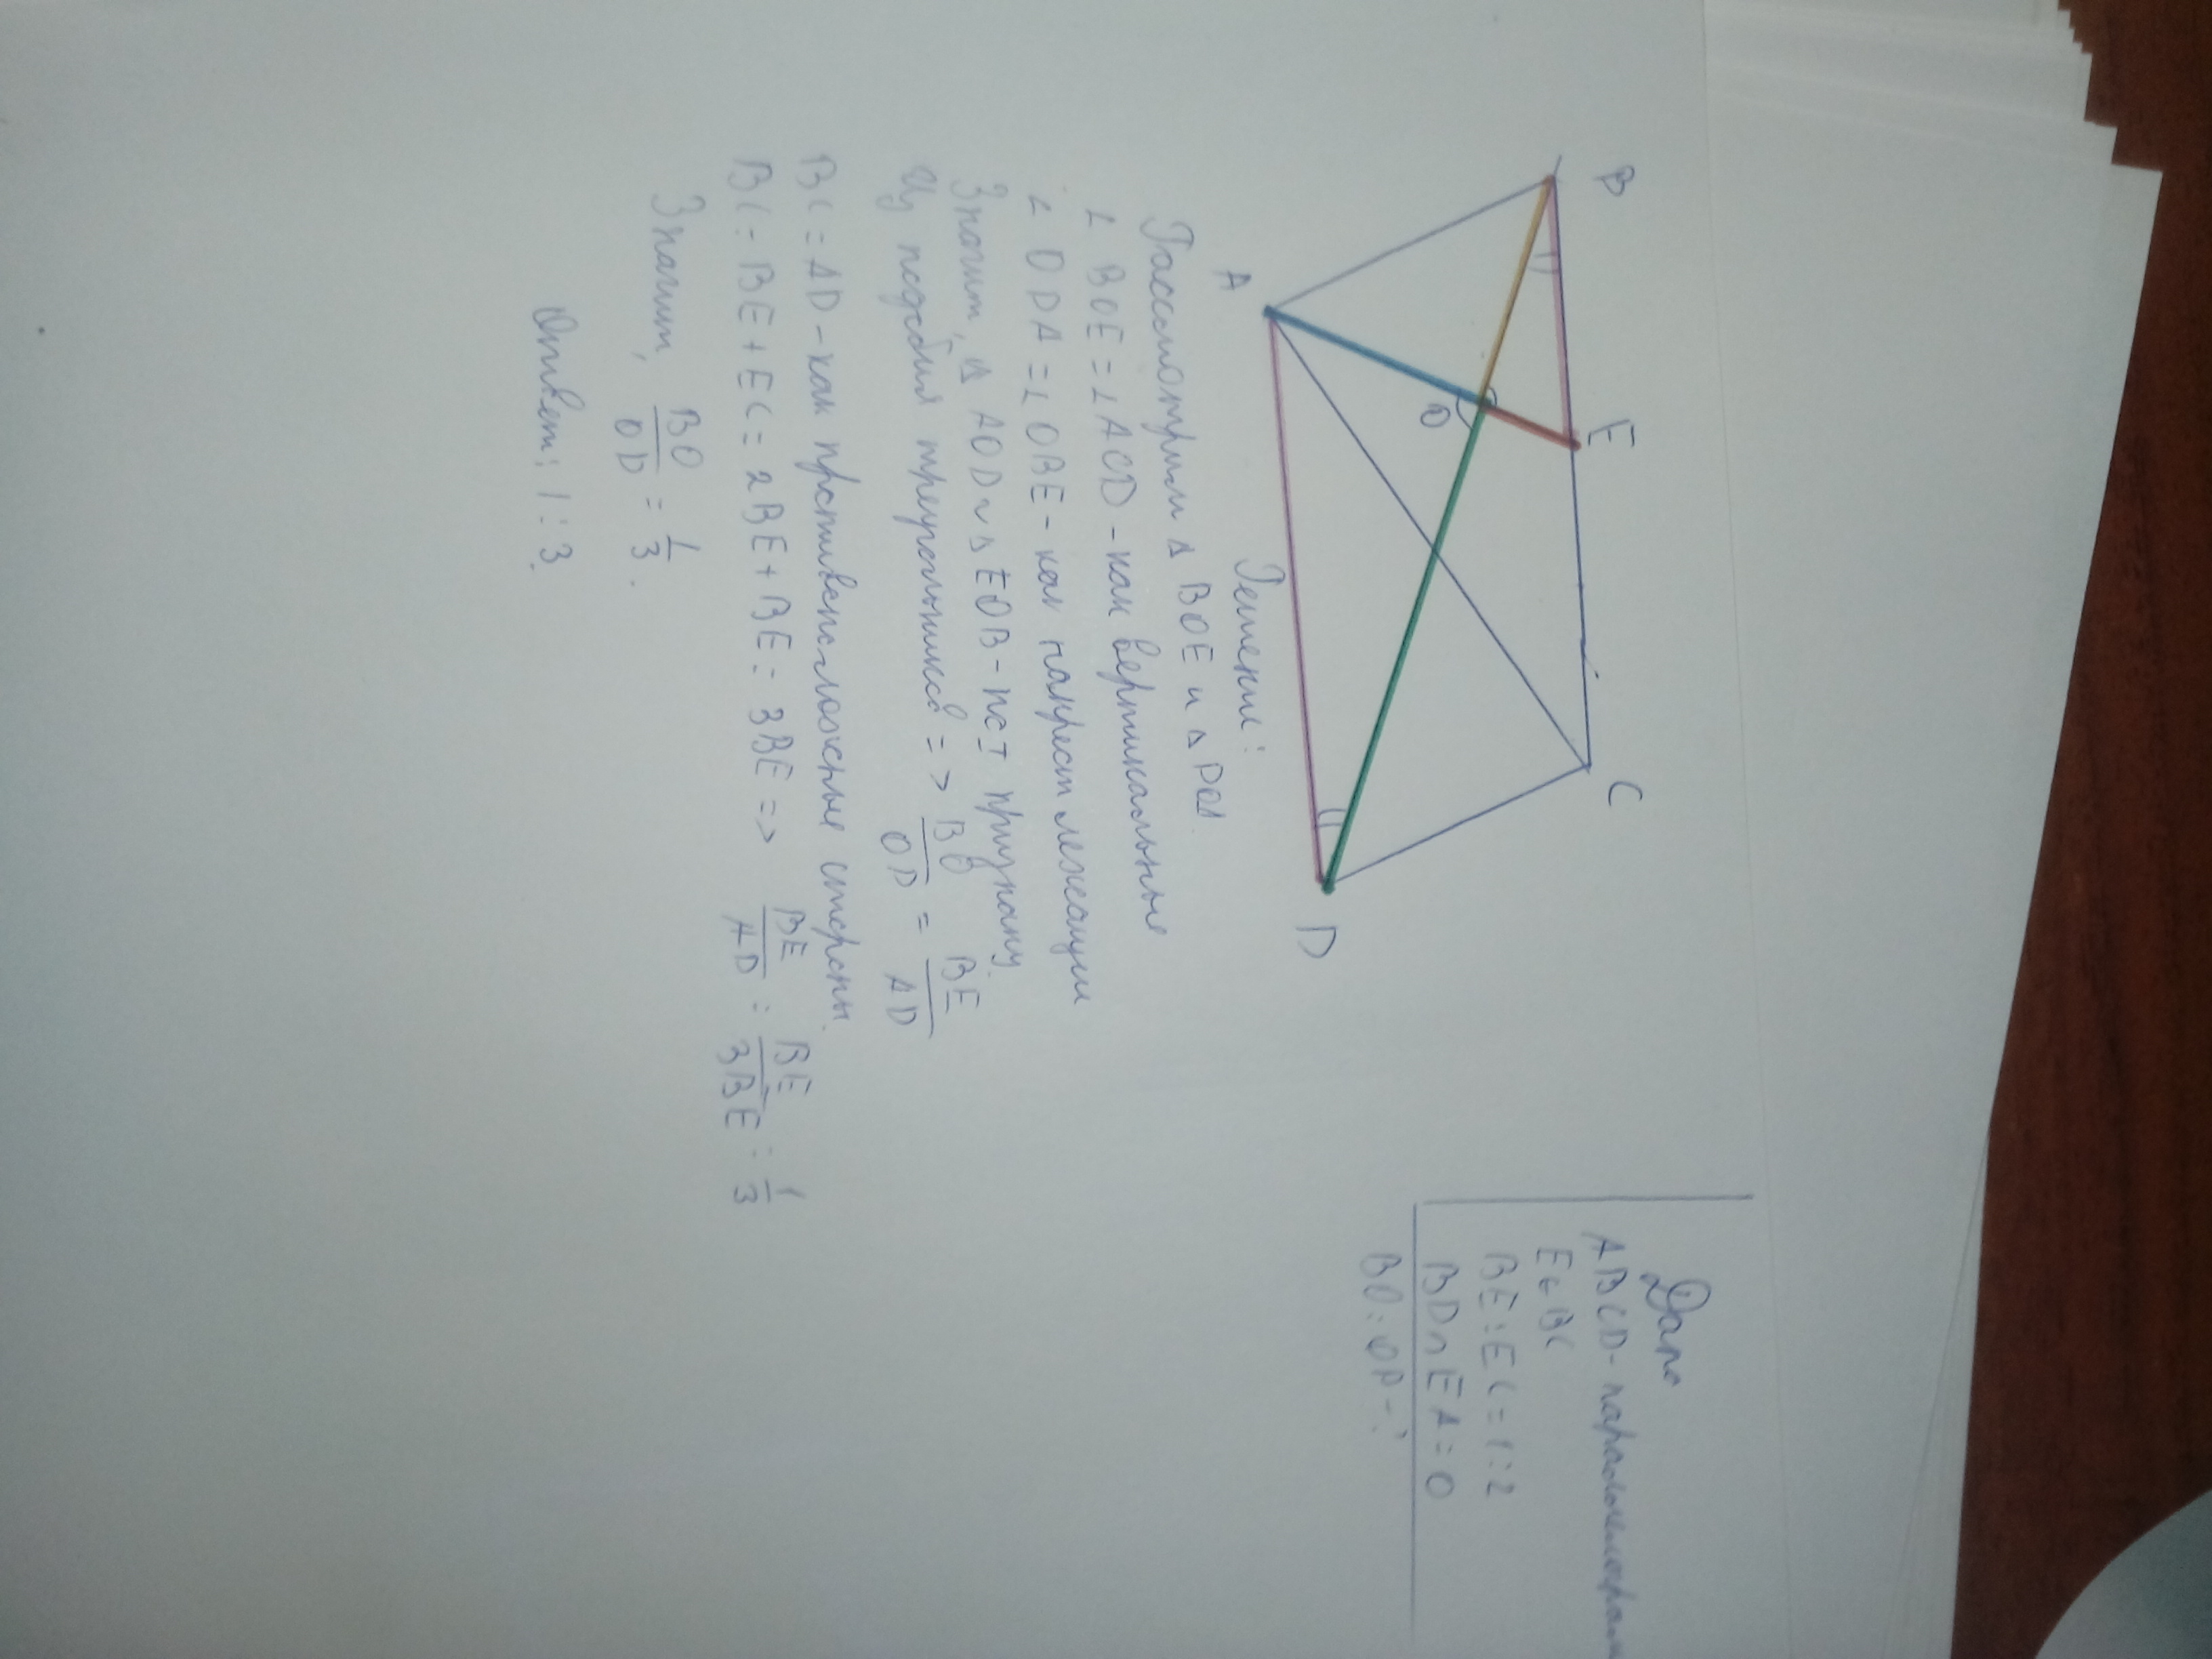 B
E
C
A
O
D
Дано
ABCD - параллелограмм
E ∈ BC
BE : EC = 1 : 2
BD ∩ EA = O
BO : OD - ?
Решение:
Рассмотрим Δ BOE и Δ DOA.
∠ BOE = ∠ AOD - как вертикальные
∠ ODA = ∠ OBE - как накрест лежащии
Значит, Δ AOD ~ Δ EOB - по I признаку.
Из подобия треугольников => BO/OD = BE/AD
BC = AD - как противоположные стороны.
BC = BE + EC = 2BE + BE = 3BE => BE/AD = BE/3BE = 1/3
Значит, BO/OD = 1/3.
Ответ: 1 : 3.